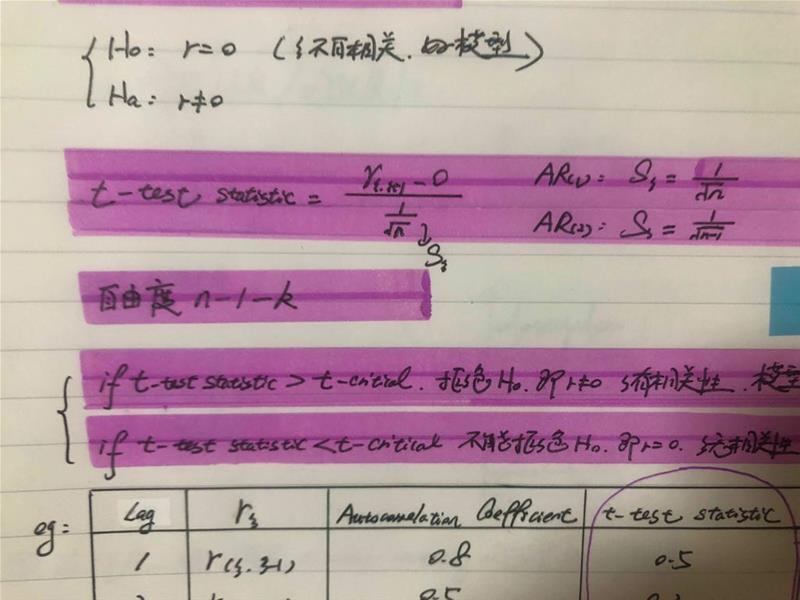 H₀: r=0 (ξ不自相关. 的模型)
Ha: r≠0
t-test statistic = (r_{ξ,ξ-1} - 0) / (1/√n) → Sξ
AR(1): Sξ = 1/√n
AR(2): Sξ = 1/√(n-1)
自由度 n-1-k
if t-test statistic > t-critical. 拒绝H₀. 即r≠0 ξ有相关性. 模型
if t-test statistic < t-critical 不能拒绝H₀. 即r=0. ξ无相关性
eg:
Lag rξ Autocorrelation Coefficient t-test statistic
1 r(ξ, ξ-1) 0.8 0.5
0.5